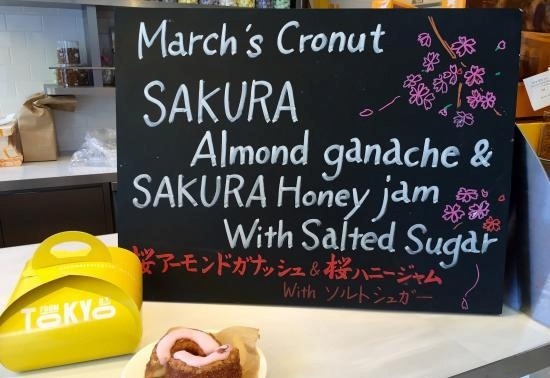 March's Cronut
SAKURA
Almond ganache &
SAKURA Honey jam
With Salted Sugar
桜アーモンドガナッシュ&桜ハニージャム
With ソルトシュガー
FROM
TOKYO